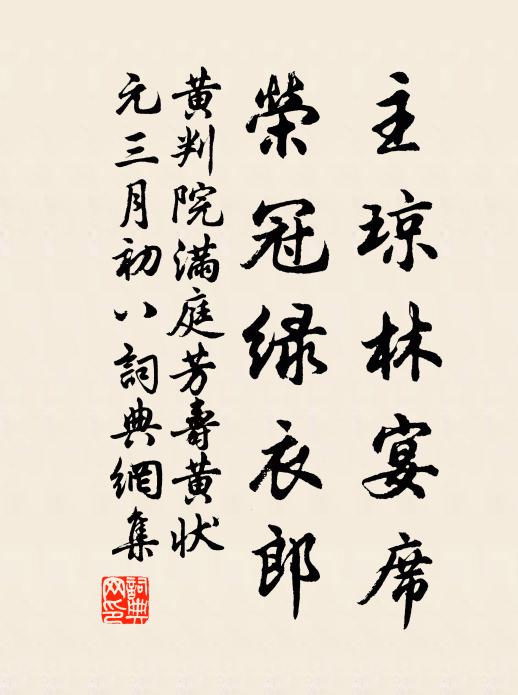 主琼林宴席
荣冠绿衣郎
黄判院满庭芳寿黄状
元三月初八詞典網集
詞典
网印